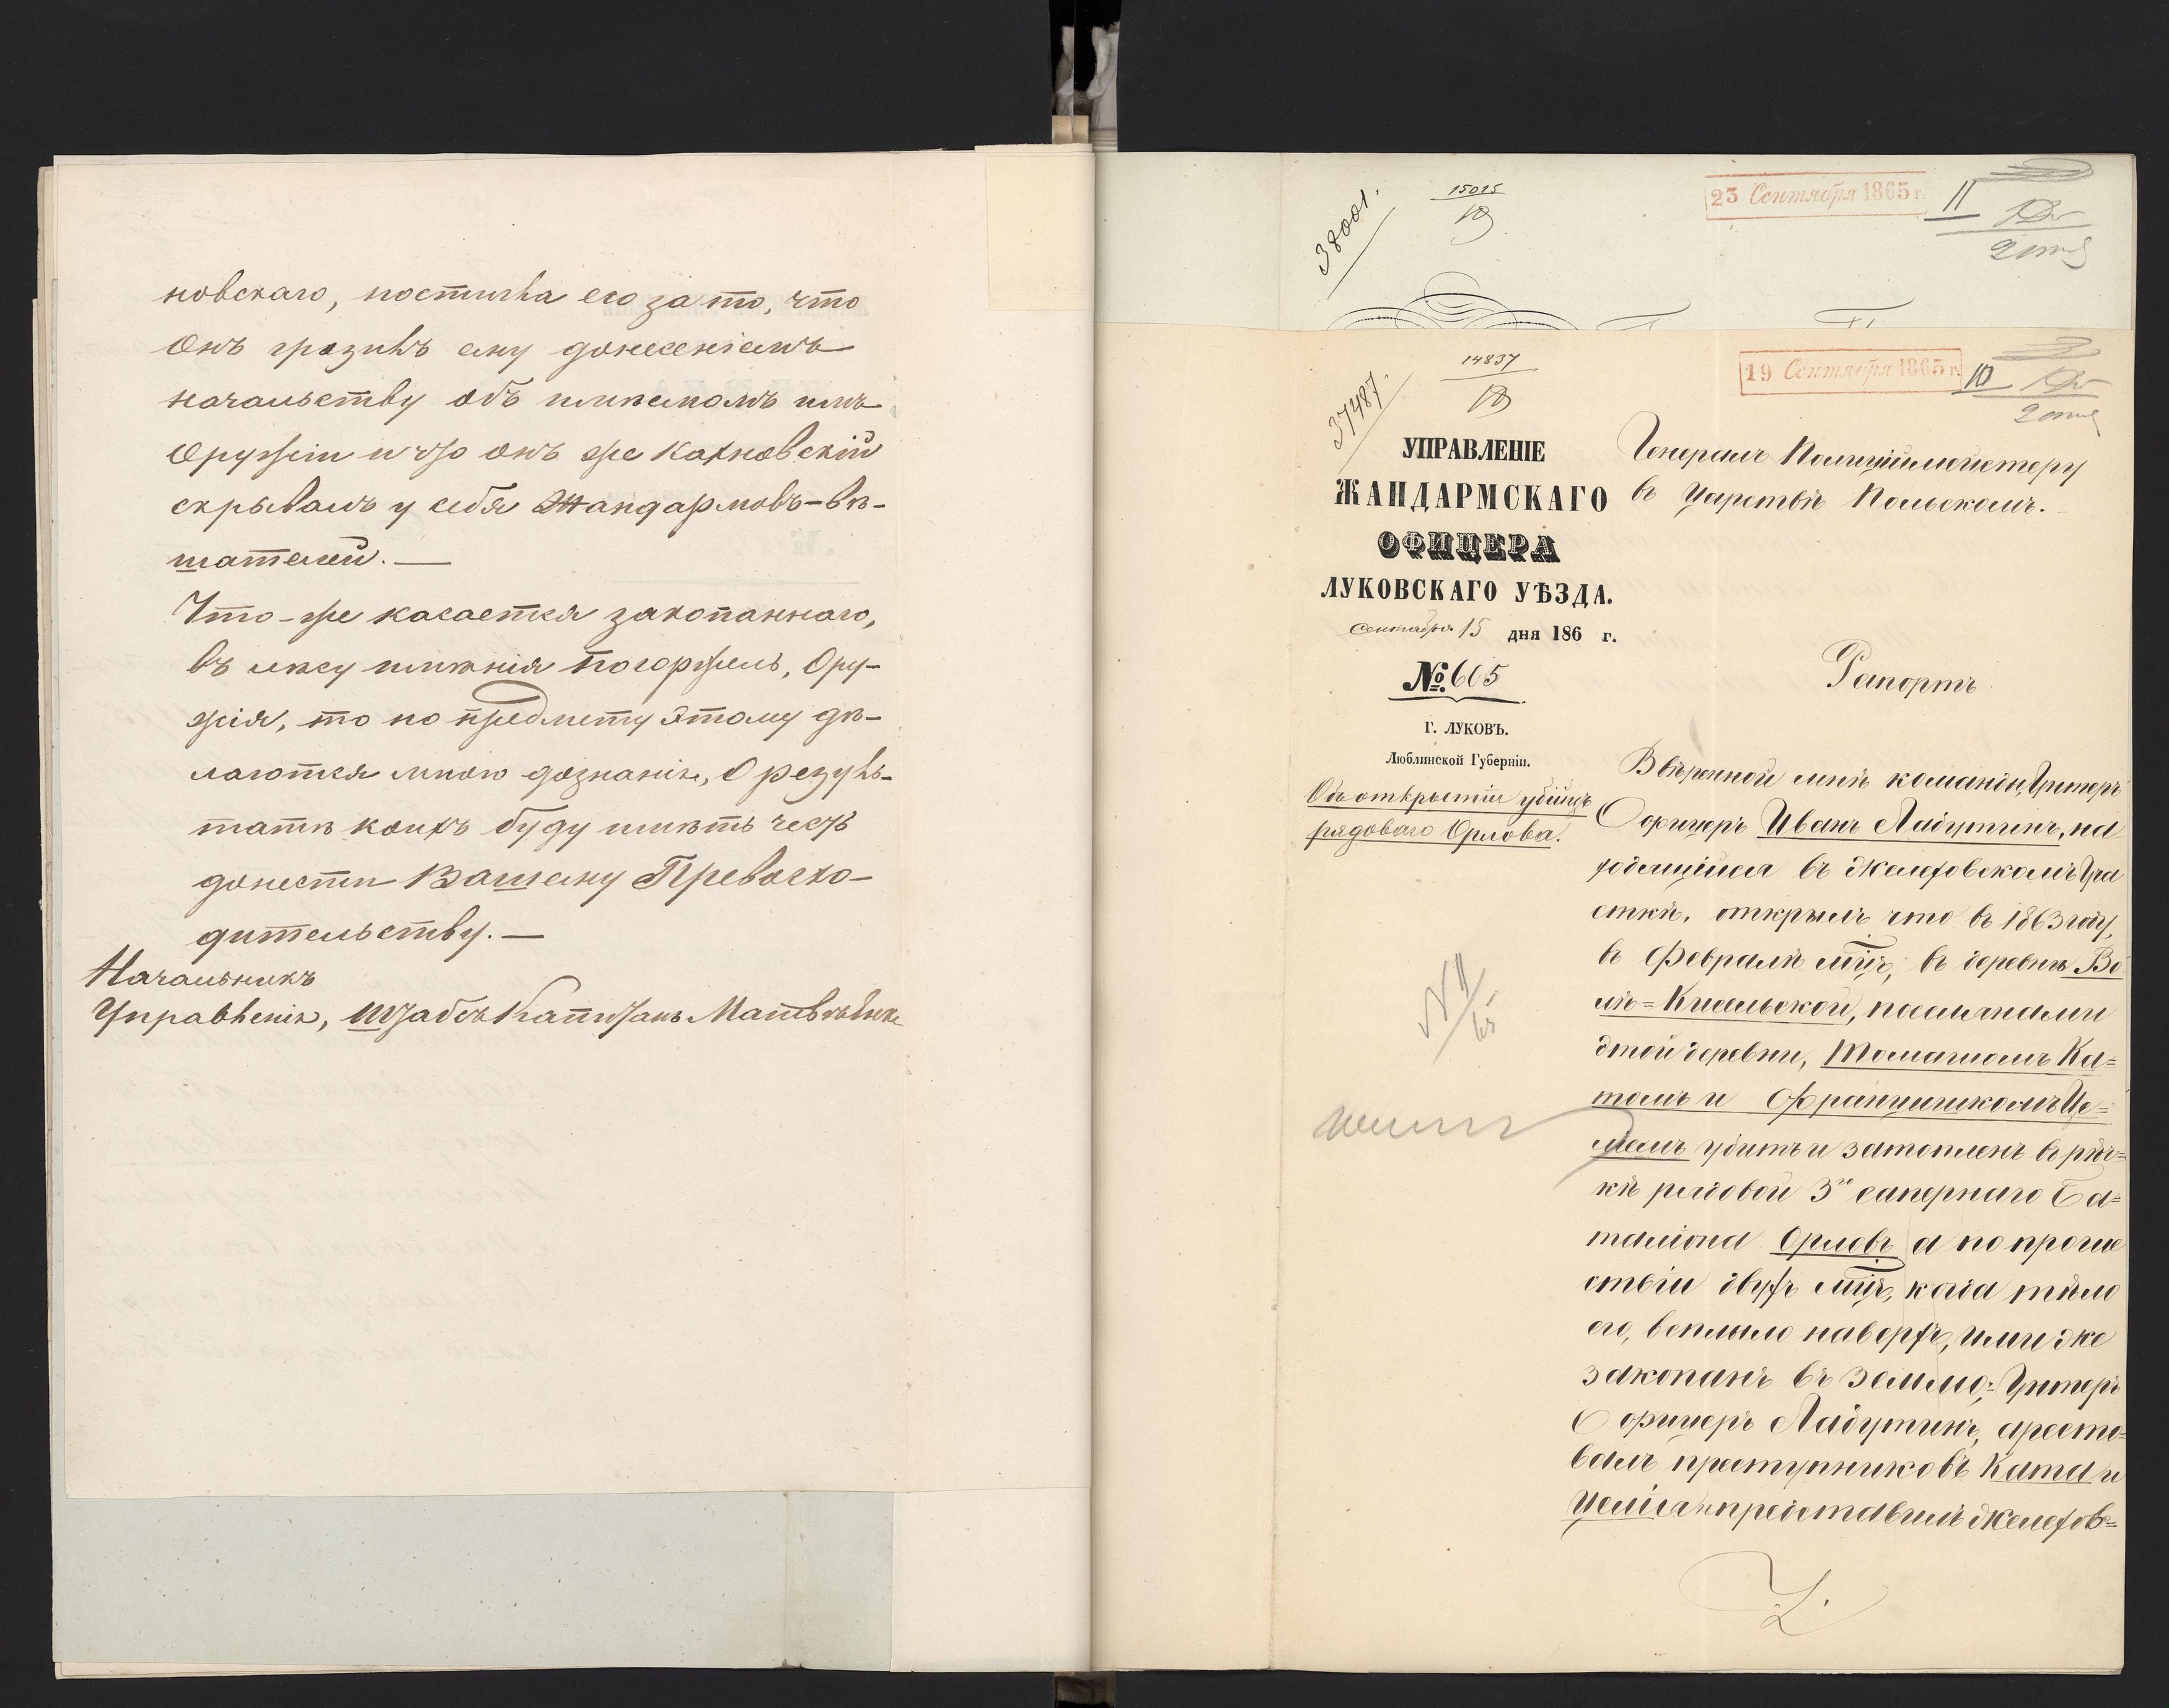 новскаго, постигла его за то, что
Онъ грозилъ ему донесеніемъ
начальству объ имѣемомъ имъ
Оружіи и что онъ же Кахновскій
скрывалъ у себя Жандармовъ-вѣ-
шателей. —
Что-же касается закопаннаго,
въ лѣсу имѣнія Погоржель, Ору-
жія, то по предмету этому дѣ-
лаются мною дознанія, О резуль-
татѣ коихъ буду имѣть честь
донести Вашему Превосхо-
дительству. —
Начальникъ
Управленія, Штабсъ Капитанъ
38001.
15015
23 Сентября 1865 г.
11
37487.
14837
19 Сентября 1865 г.
10
УПРАВЛЕНІЕ
ЖАНДАРМСКАГО
ОФИЦЕРА
ЛУКОВСКАГО УѢЗДА.
Сентября 15 дня 186 г.
№ 605
Г. ЛУКОВЪ.
Люблинской Губерніи.
Объ открытіи убійцъ
рядоваго Орлова.
Генералъ Полицiймейстеру
въ Царствѣ Польскомъ.
Рапортъ
Ввѣренной мнѣ команды, Унтеръ
Офицеръ Иванъ Ладутинъ, на
ходящійся въ Желеховскомъ Уча
сткѣ, открылъ что въ 1863 году,
въ Февралѣ мцѣ, въ деревнѣ Во
лѣ=Кисельской, поселянами
этой деревни, Томашомъ Ка=
томъ и Францишкомъ Це=
лѣемъ убитъ и затопленъ въ рѣч=
кѣ рядовой 3го сапернаго Ба=
таліона Орловъ а по проше
ствіи двухъ мцъ, когда тѣло
его, всплыло наверхъ, ими же
закопанъ въ землю; Унтеръ
Офицеръ Ладутинъ, аресто=
валъ преступниковъ Ката и
Целія и представилъ Желехов=